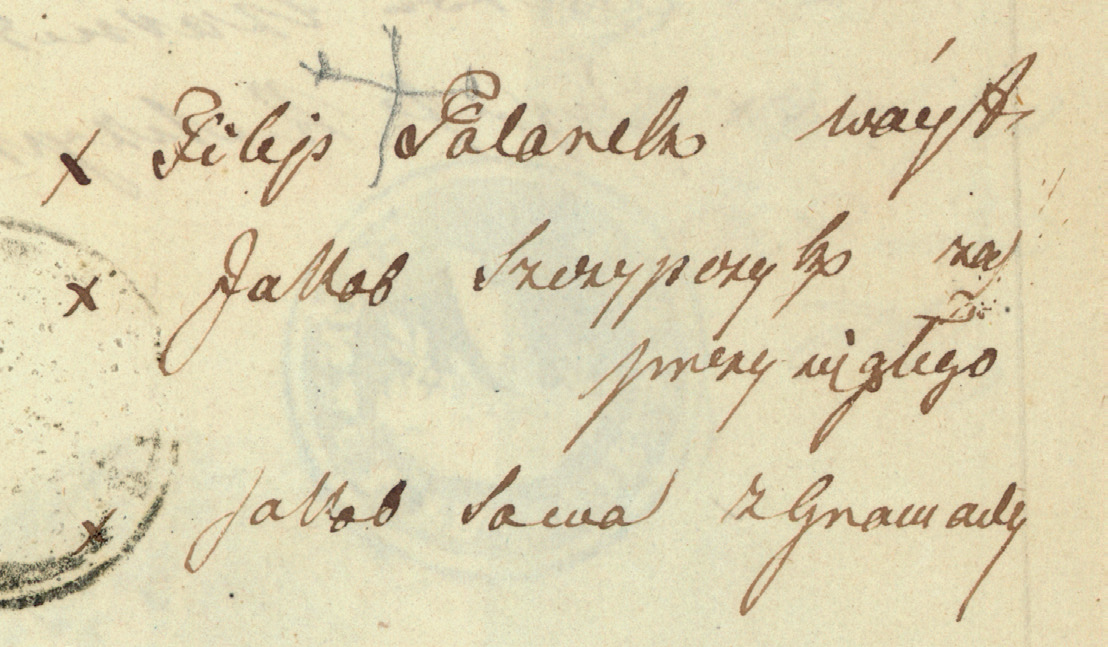 x Filip Polanek wáyt
x Jakob Szczypczyk za
przysięgłego
x Jakob Sowa z Gromady